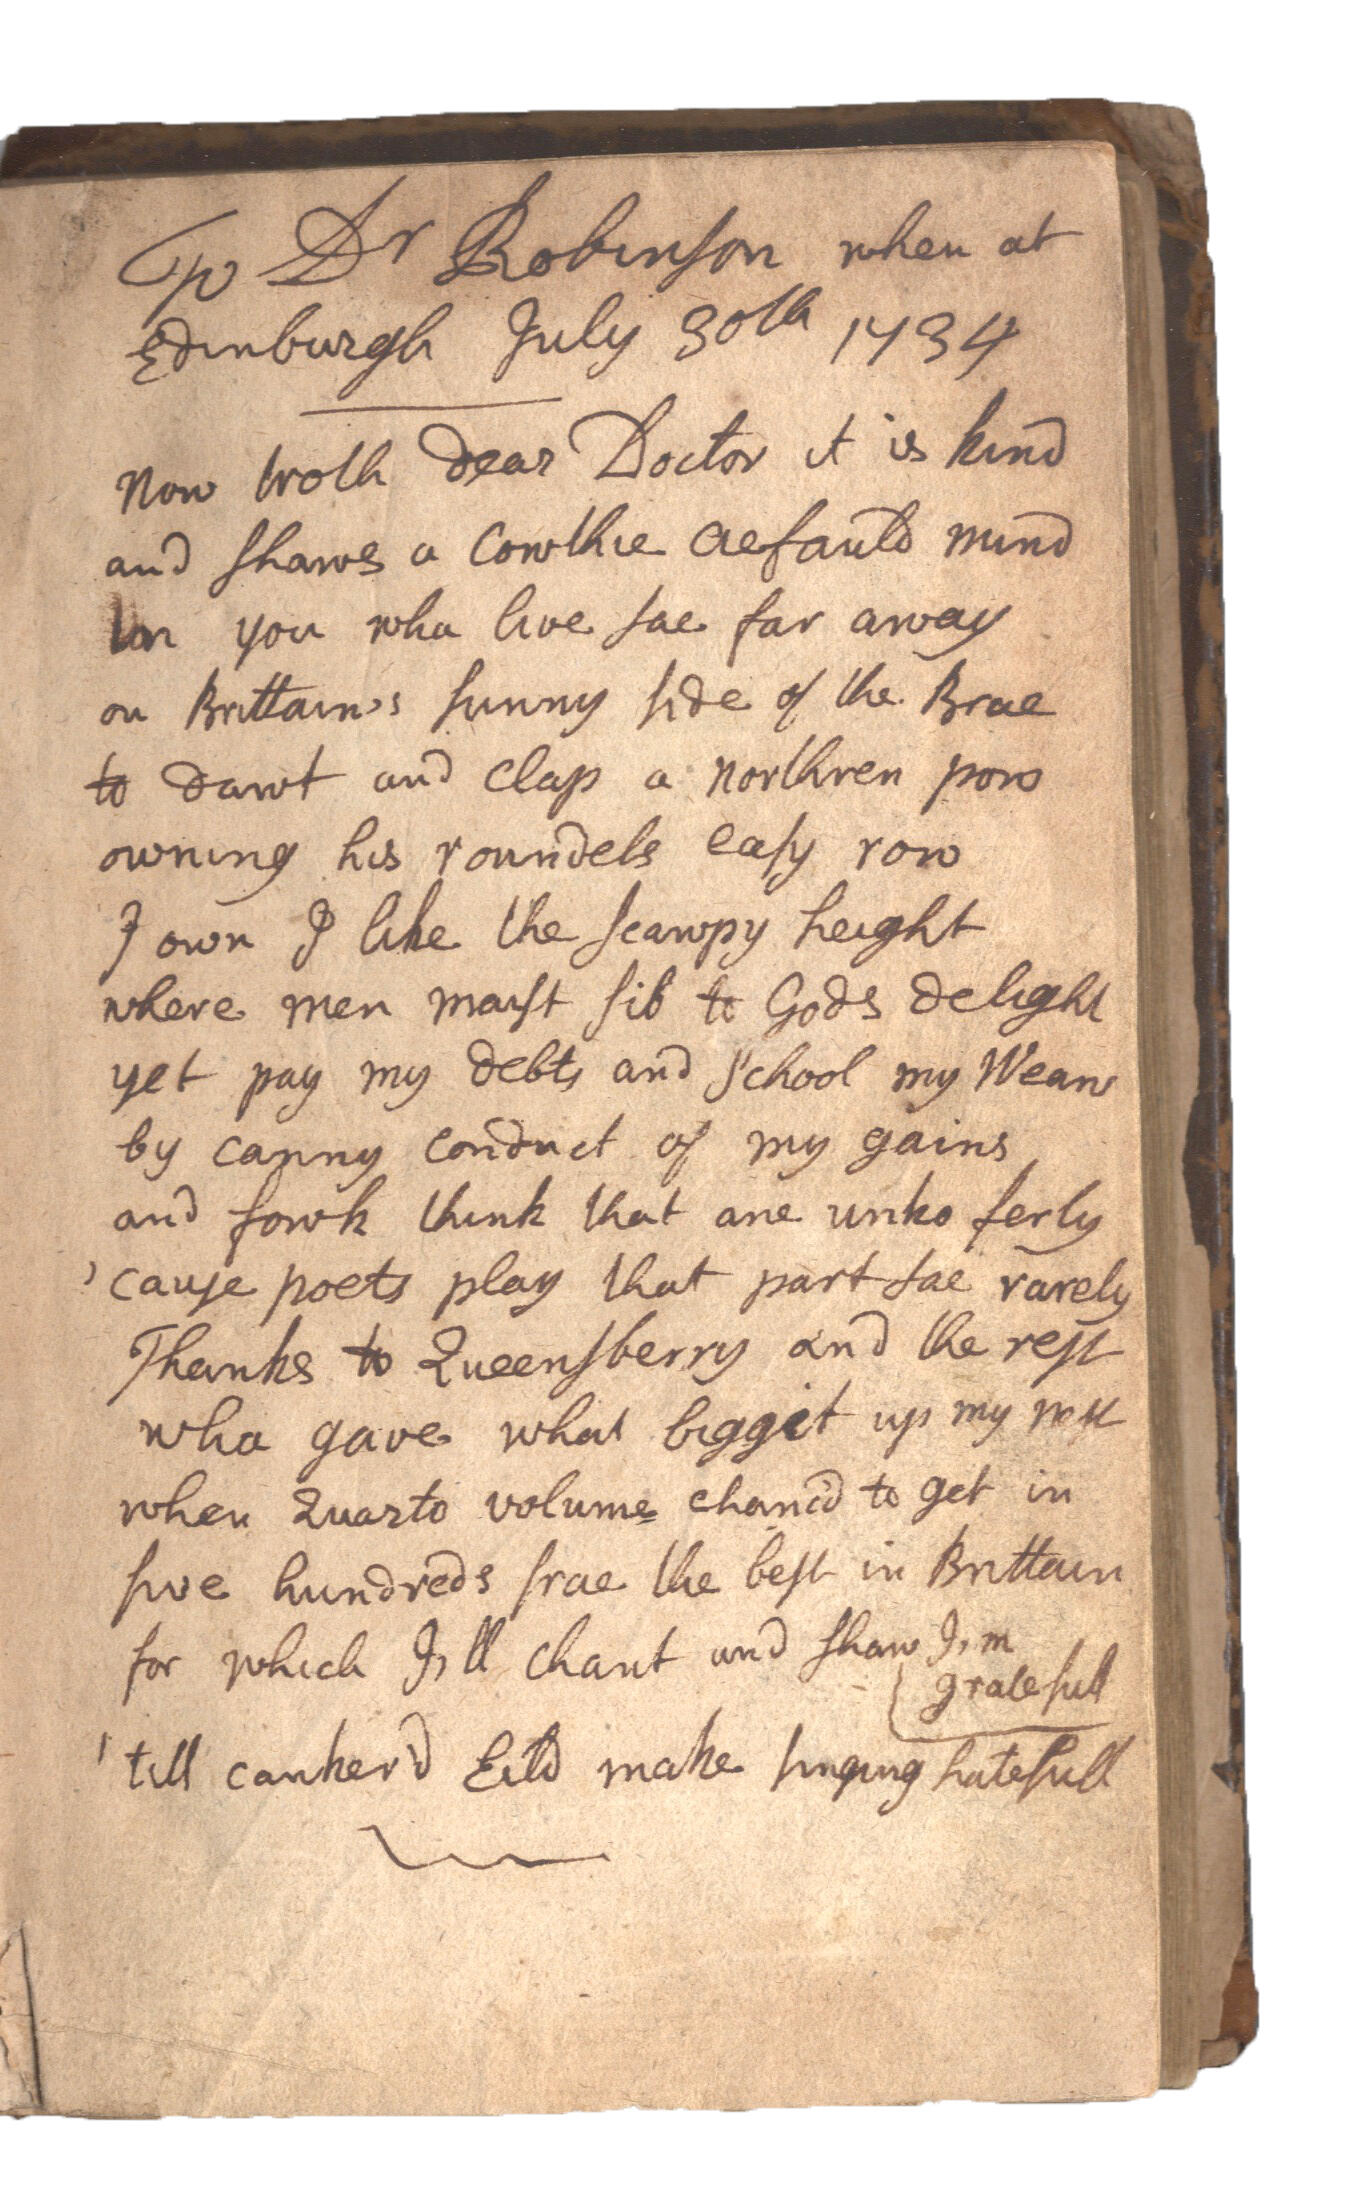 To Dr Robinson when at
Edinburgh July 30th 1734
Now troth dear Doctor it is kind
and shaws a Cowthie aefauld mind
in you wha live sae far away
on Brittain's sunny side of the Brae
to dawt and clap a northren pow
owning his roundels easy row
I own I like the scawpy height
where men maist sib to Gods delight
yet pay my debts and School my Weans
by canny conduct of my gains
and fowk think that ane unko ferly
'cause poets play that part sae rarely
Thanks to Queensberry and the rest
wha gave what biggit up my nest
when Quarto volume chanc'd to get in
five hundreds frae the best in Brittain
for which I'll chant and shaw I'm
gratefull
'till canker'd Eild make singing hatefull